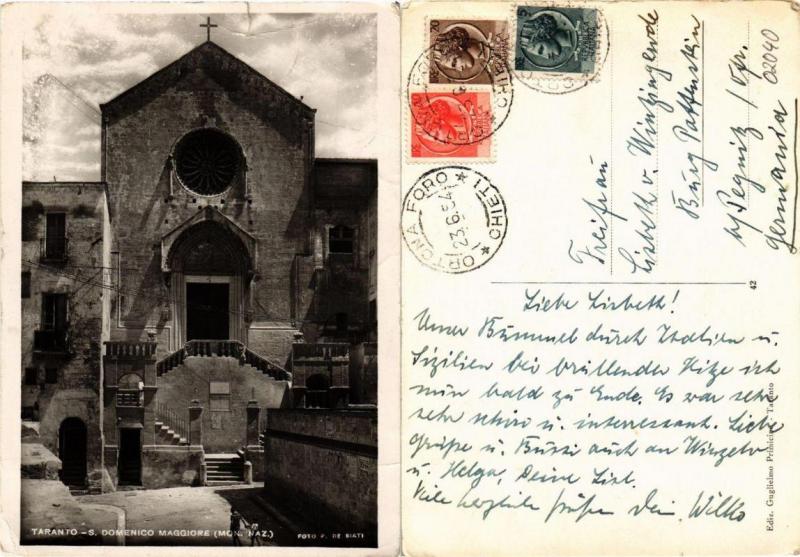 TARANTO - S. DOMENICO MAGGIORE (MON. NAZ.)
FOTO P. DE SIATI
ORTONA FORO
23.6.54
* ORTONA FORO * CHIETI
Freifrau
Lisbeth v. Wintzingerode
Burg Pottenstein
b/ Pegnitz / Ofr.
Germania
02040
42
Liebe Lisbeth!
Unser Bummel durch Italien u.
Sizilien bei brüllender Hitze ist
nun bald zu Ende. Es war sehr
sehr schön u. interessant. Liebe
Grüße u. Bussi auch an
u. Helga, Deine Lisl.
Viele herzliche Grüße Dein Wilko
Ediz. Guglielmo Taranto